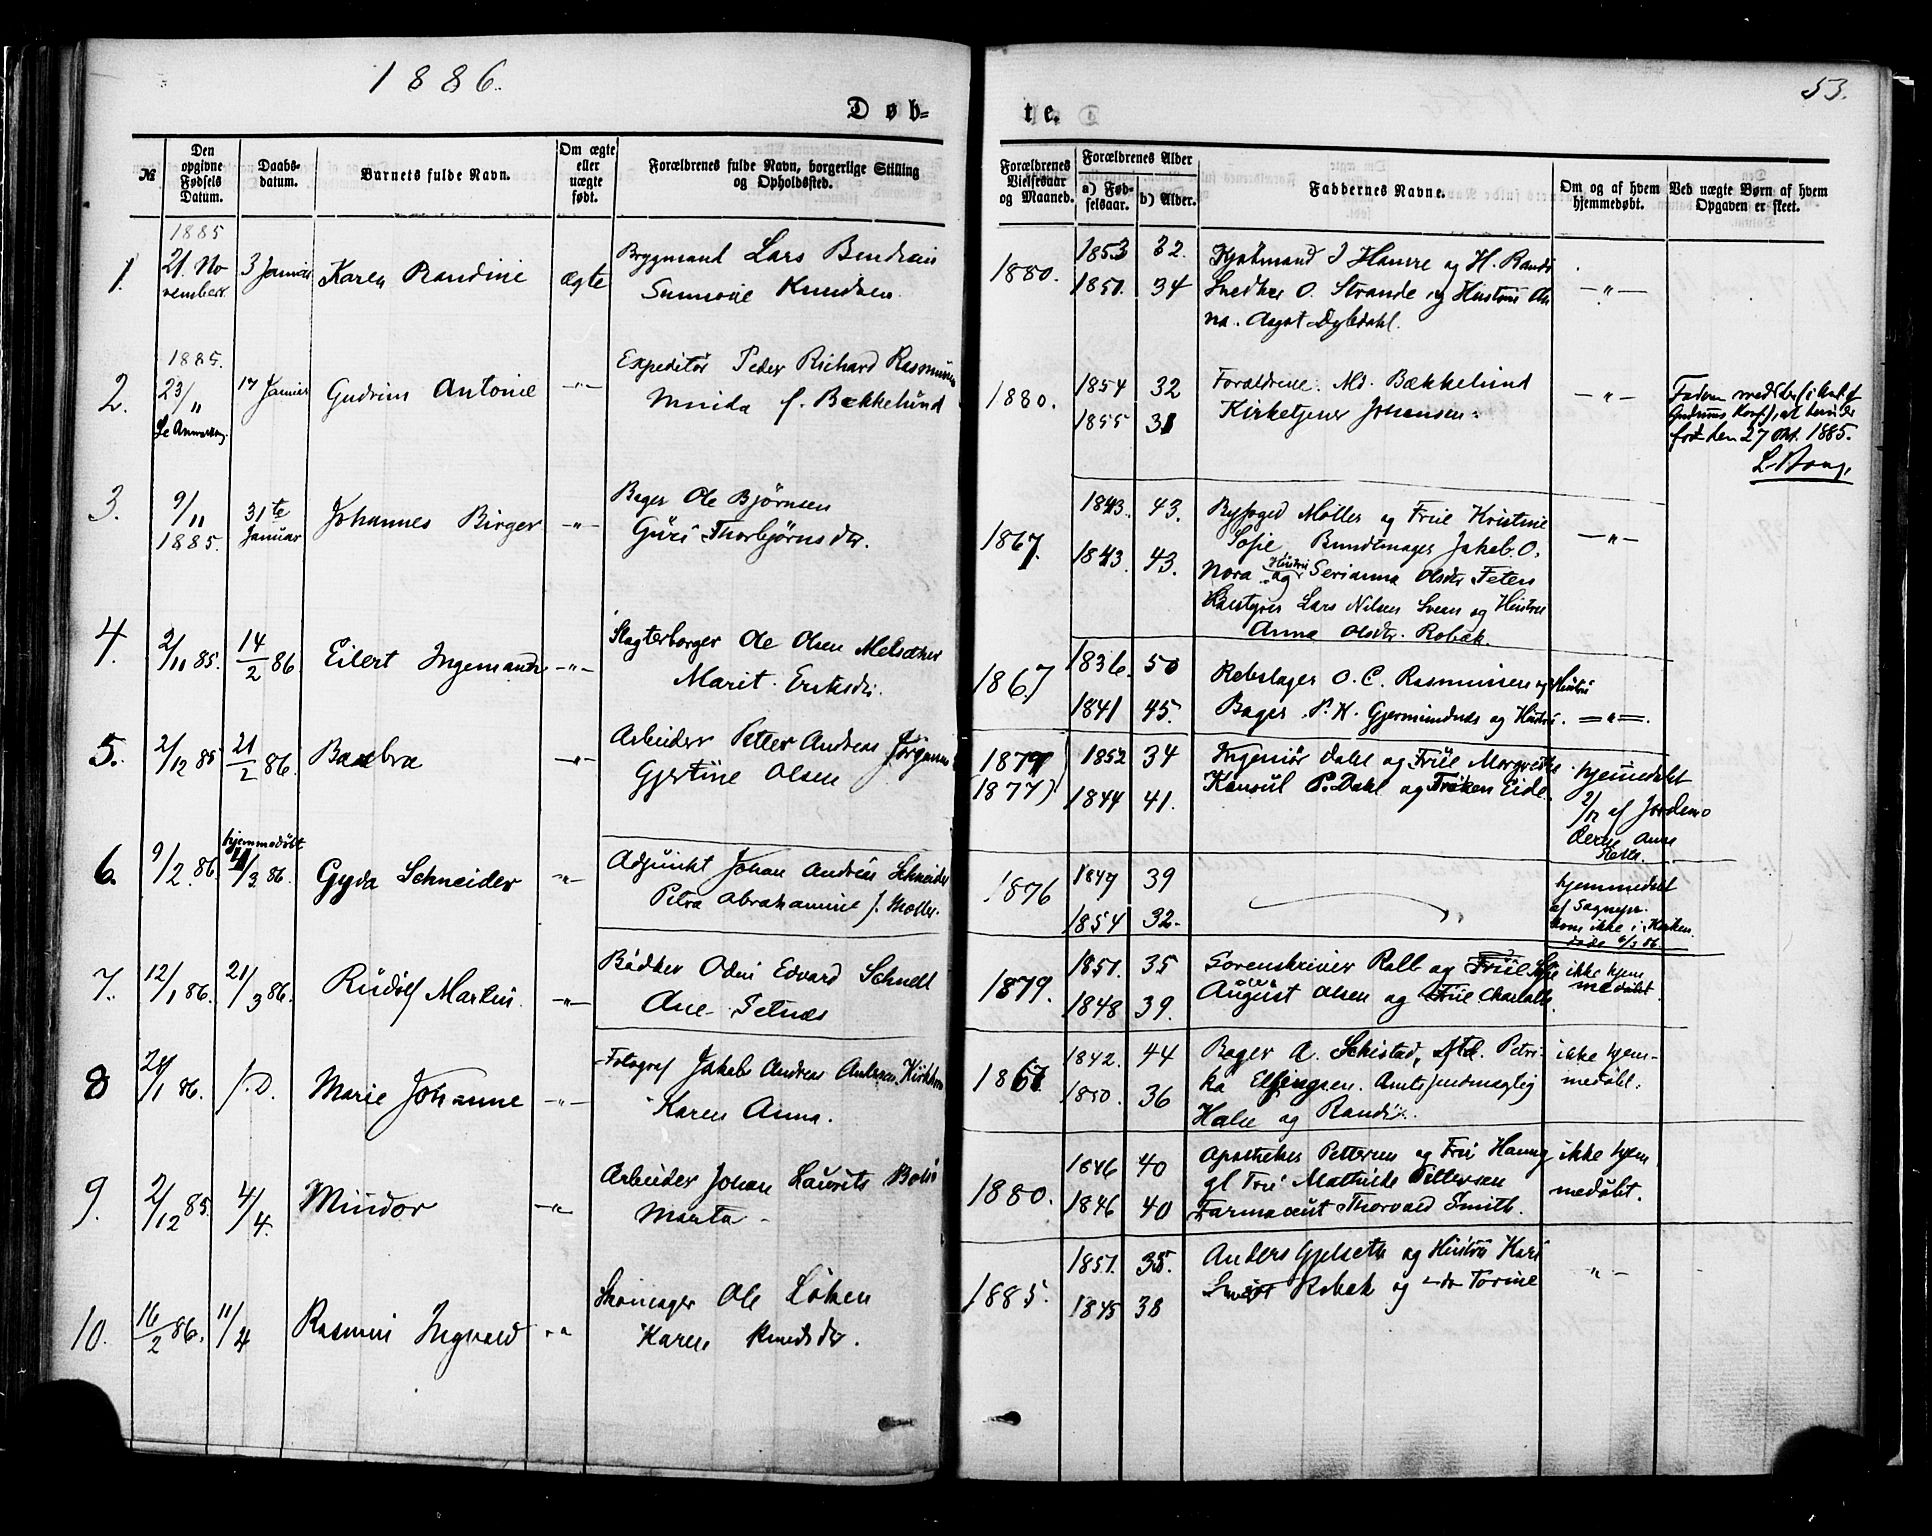 1886.
53.
Døb-
te.
№
Den opgivne Fødsels Datum.
Daabs-datum.
Barnets fulde Navn.
Om ægte eller uægte født.
Forældrenes fulde Navn, borgerlige Stilling og Opholdssted.
Forældrenes Vielsesaar og Maaned.
Forældrenes Alder
a) Fød-selsaar.
b) Alder.
Faddernes Navne.
Om og af hvem hjemmedøbt.
Ved uægte Børn af hvem Opgaven er skeet.
1.
1885
21. No
vember.
3 Januar
Karen Randine
ægte
Brygmand Lars
Knudsen.
1880.
1853 32.
1851. 34
Kjøbmand J Hamre og H. Rands
Snedker O. Strande og Hustru An
na. Aagot Dybdahl.
— " —
2.
1885.
23/11
Se Anmærkn.
17 Januar
Gudrun Antonie
— " —
Expeditør Peder Richard Rasmussen
Minda f. Bækkelund
1880.
1854 32
1855 31
Forældrene. Md. Bækkelund
Kirketjener Johansen.
— " —
Fadern melder
Gudruns Konf.), at hun er
født den 27 Okt. 1885.
3.
9/11
1885.
31te
Januar
Johannes Birger
— " —
Bager Ole Bjørnsen
Guri Thorbjørnsdtr.
1867.
1843. 43.
1843. 43.
Byfoged Møller og Frue Kristine
Sofie Bundtmager Jakob O.
Nora og Hustru Serianna Olsdtr Feten
Lars Nilsen Sveen og Hustru
Anna Olsdtr. Robak.
— " —
4.
2/11 85.
14/2 86
Eilert Ingemann
— " —
Slagterborger Ole Olsen Melsæther
Marit Eriksdtr.
1867
1836. 50
1841 45.
Rebslager O. C. Rasmussen og Hustru
Bager P. K. Gjermundnæs og Hustru.
= " =
5.
2/12 85
21/2 86.
Barbra
— " —
Arbeider Petter Andreas Jørgensen
Gjertine Olsen
1879
(1877)
1852 34
1844 41.
Ingeniør Dahl og Frue Margrethe
Konsul P. Dahl og Frøken Eide.
hjemmedøbt
2/12 af Jordemo
deren Anne
6.
9/2 86.
hjemmedøbt
11/3 86.
Gyda Schneider
— " —
Adjunkt Johan Andreas Schneider
Petra Abrahamine f. Møller.
1876
1847 39
1854 32.
hjemmedøbt
af Sognepr.
kom ikke i Kirken.
døde 6/3 86
7.
12/1 86.
21/3 86.
Rudolf Martin
— " —
Bødker Odin Edvard Schnell
Ane Setnæs
1879.
1851. 35
1848 39.
Sorenskriver Roll og Frue
August Olsen og Frue Charlotte.
ikke hjem
medøbt.
8
24/1 86.
s. D.
Marie Johanne
— " —
Fotograf Jakob Andreas Andersen Kirkhorn
Karen Anna.
1867
1842. 44
1850. 36
Bager A. Schistad, Md. Petri-
ka Ellingsen. Amtsfuldmægtig
Halse og Randi.
ikke hjem-
medøbt.
9.
2/12 85.
4/4.
Mindor
— " —
Arbeider Johan Laurits Bolsø
Marta -
1880.
1846 40
1846 40
Apotheker Pettersen og Frue Hanna
gl Frue Mathilde Pettersen
Farmaceut Thorvald Smith.
ikke hjem
medøbt.
10.
16/2 86.
11/4
Rasmus Ingvald
" "
Skomager Ole Løken
Karen Knudsdtr.
1885.
1851. 35.
1845 38
Anders Gjelseth og Hustru Kari
Robak og — do Torine
" —